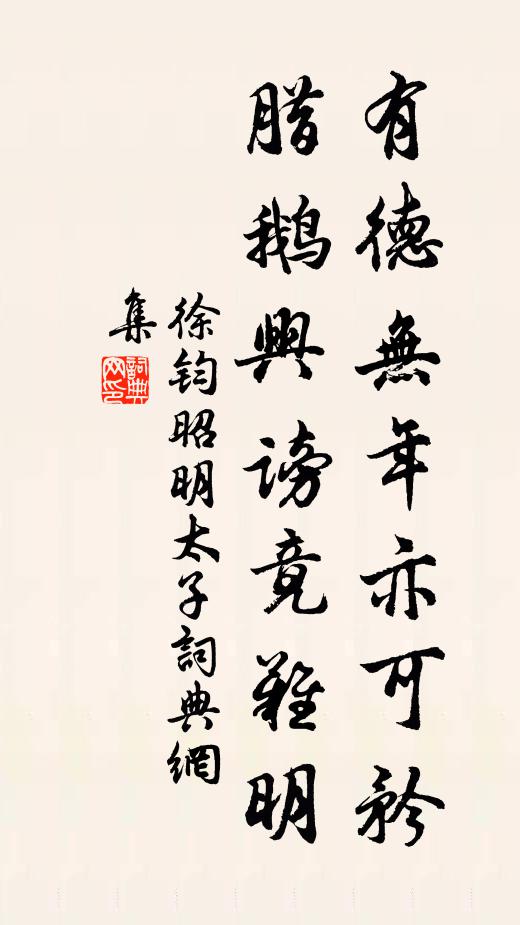 有德無年亦可矜
腊鹅興謗竟難明
徐鈞昭明太子詞典網
集
詞典网印